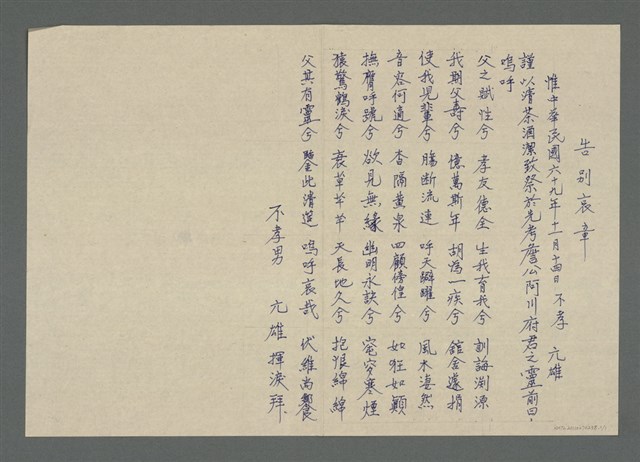 告別哀章
惟中華民國六十九年十一月十四日 不孝 亢雄
謹以清茶酒潔致祭於先考詹公阿川府君之靈前曰，
嗚呼
父之賦性兮 孝友德全 生我育我兮 訓誨淵源
我期父壽兮 億萬斯年 胡為一疾兮 館舍遽捐
使我兒輩兮 腸斷流連 呼天躃踊兮 風木淒然
音容何適兮 杳隔黃泉 四顧徬徨兮 如狂如顛
撫膺呼號兮 欲見無緣 幽明永訣兮 窀穸寒煙
猿驚鶴淚兮 衰草芊芊 天長地久兮 抱恨綿綿
父其有靈兮 鑒此清筵 嗚呼哀哉 伏維尚饗
不孝男 亢雄 揮淚拜